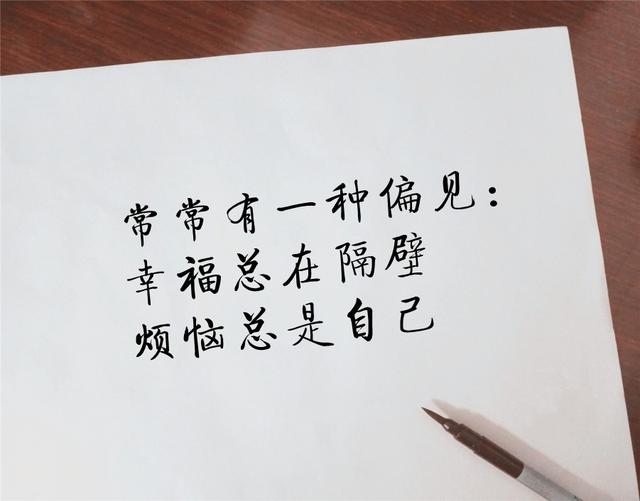 常常有一种偏见：
幸福总在隔壁
烦恼总是自己